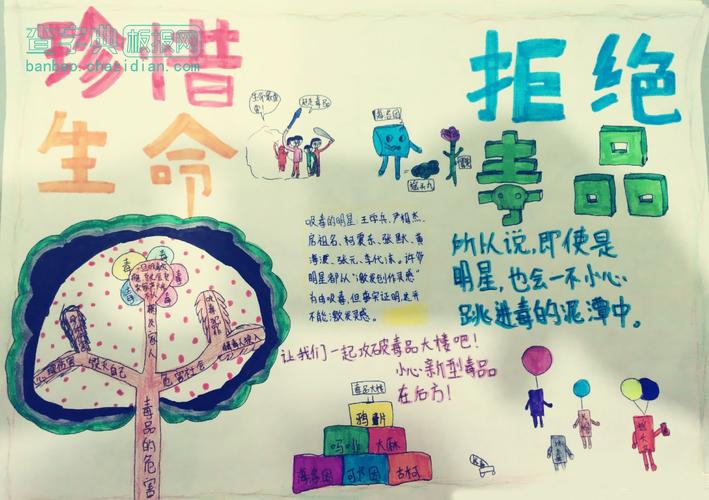 查字典板报网
banbao.chazidian.com
珍惜
生命
拒绝
毒品
吸毒的明星、王学兵、尹相杰、
房祖名、柯震东、张默、黄
海波、张元、李代沫。许多
明星都以“激发创作灵感”
为由吸毒，但事实证明並并
不能激发灵感。
所以说,即使是
明星,也会一不小心
跳进毒的泥潭中。
让我们一起攻破毒品大楼吧!
小心新型毒品
在后方!
毒品大楼
鸦片
吗啡
大麻
海洛因
可卡因
古柯
毒
毒
毒
毒
损害自己
危害社会
损害家人
毒品的危害